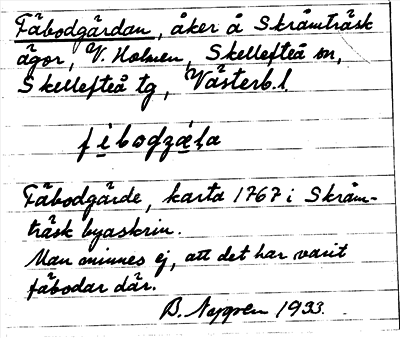 Fäbodgärdan, åker å Skråmträsk
ägor, V. Holmen, Skellefteå sn,
Skellefteå tg, Västerb. l
fìbodʒæ̀ɽa
Fäbodgärde, karta 1767 i Skråm-
träsk byaskrin.
Man minnes ej, att det har varit
fäbodar där.
B. Nygren 1933.